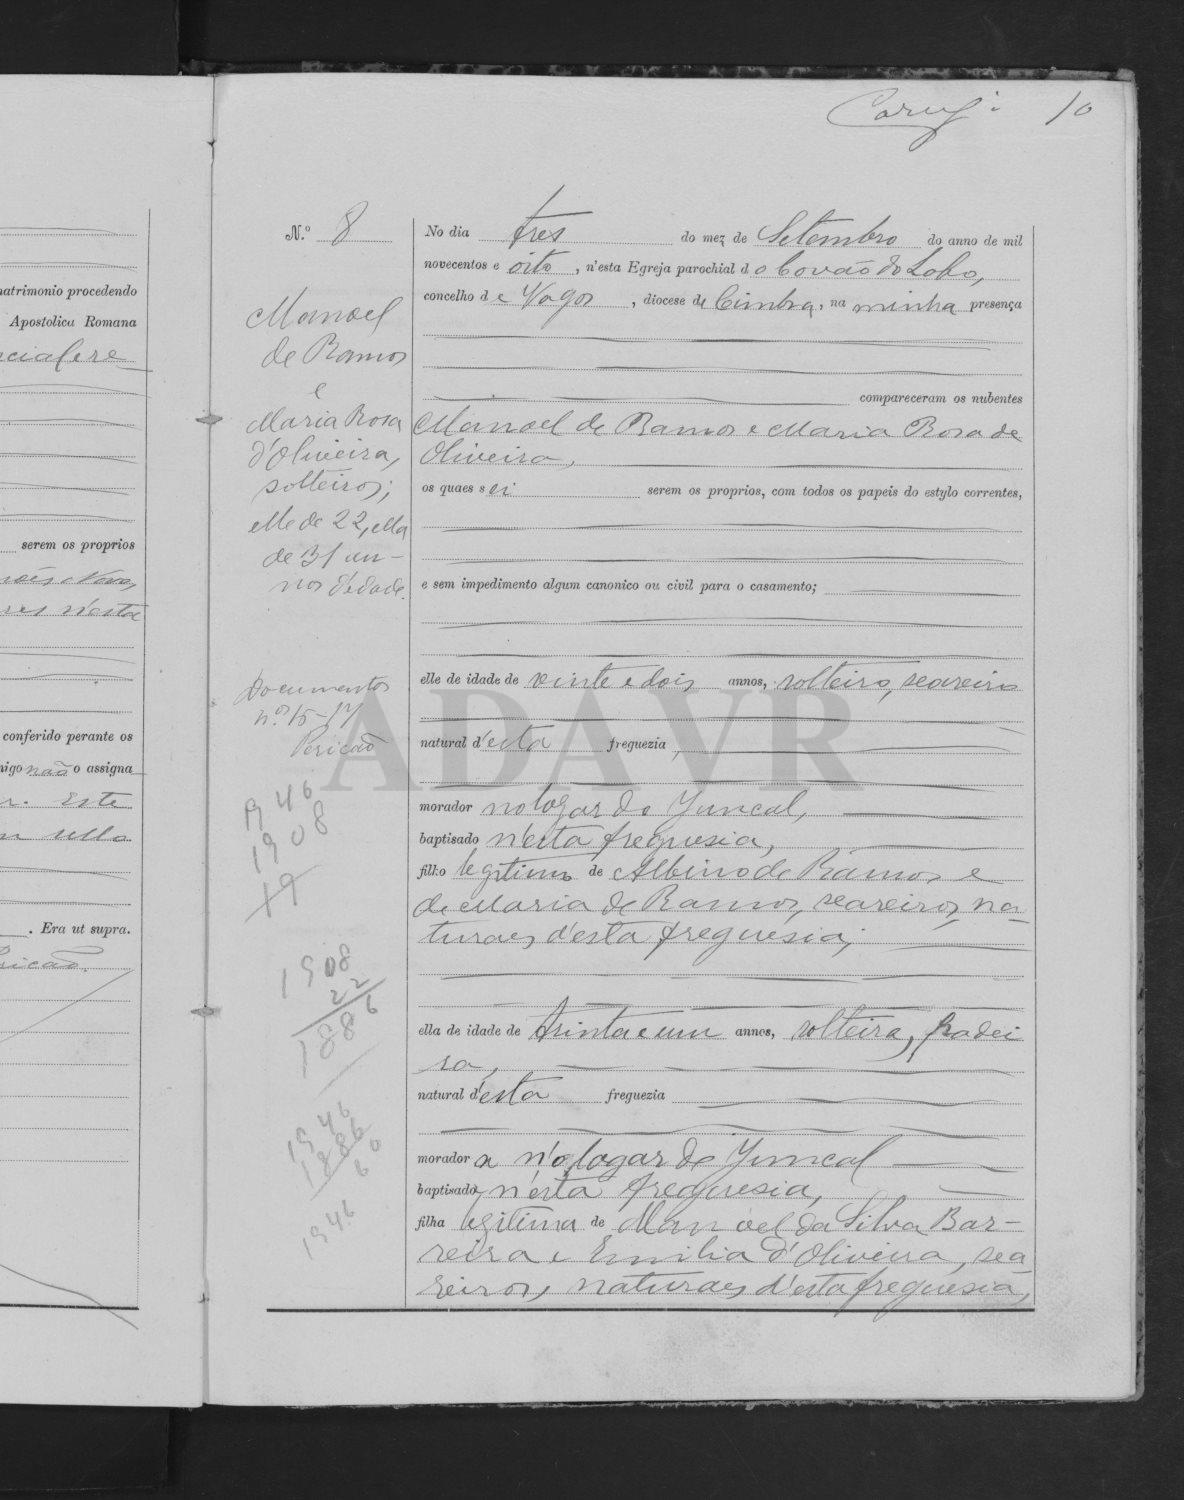 10
N.º 8
Manoel
de Ramos
e
Maria Rosa
d'Oliveira,
solteiros;
elle de 22, ella
de 31 an-
nos d'edade.
Documentos
n.os 15-17
Pericaõ
1946
1908
19
1908
22
1886
1946
1886
60
1946
No dia tres do mez de Setembro do anno de mil
novecentos e oito, n'esta Egreja parochial do Covão do Lobo,
concelho de Vagos, diocese de Coimbra, na minha presença
compareceram os nubentes
Manoel de Ramos e Maria Rosa de
Oliveira,
os quaes sei serem os proprios, com todos os papeis do estylo correntes,
e sem impedimento algum canonico ou civil para o casamento;
elle de idade de vinte e dois annos, solteiro, seareiro
natural d'esta freguezia,
morador no logar do Juncal,
baptisado n'esta freguesia,
filho legitimo de Albino de Ramos e
de Maria de Ramos, seareiros, na
turaes d'esta freguesia;
ella de idade de trinta e um annos, solteira, padei
ra,
natural d'esta freguezia
moradora n'o logar do Juncal
baptisada n'esta freguesia,
filha legitima de Manoel da Silva Bar-
reira e Emilia d'Oliveira, sea
reiros, naturaes d'esta freguesia,
matrimonio procedendo
Apostolica Romana
serem os proprios
n'esta
conferido perante os
migo não o assigna
Este
ella
. Era ut supra.
ADAVR